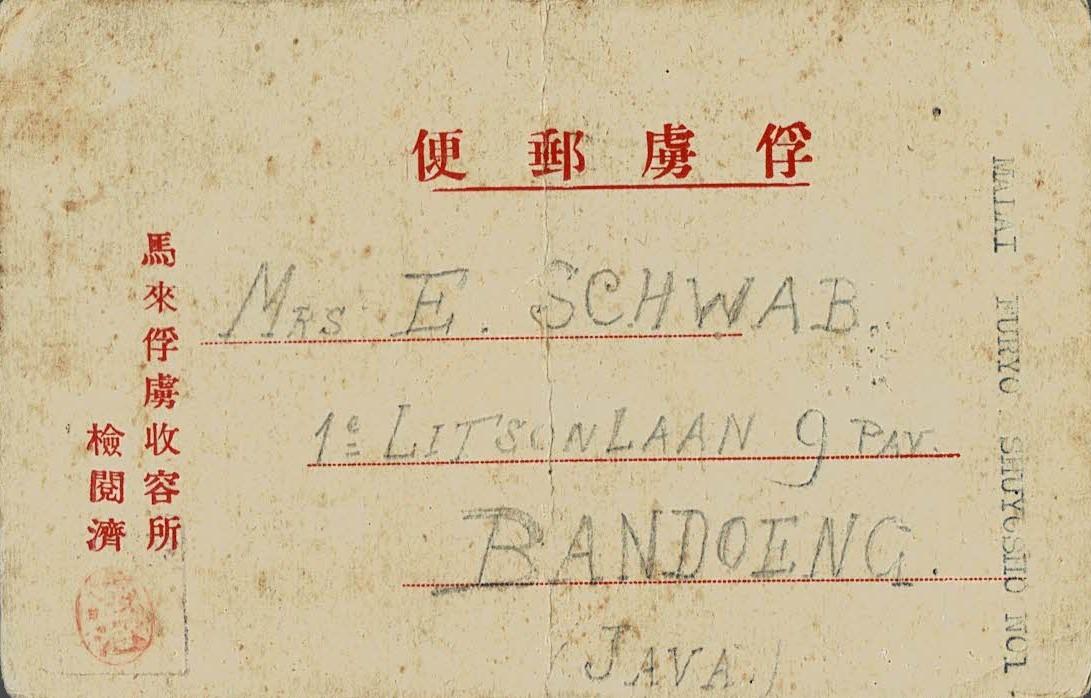 俘虜郵便
MALAI FURYO SHUYOSHO NO1
MRS E. SCHWAB.
1e LITSONLAAN 9 PAV.
BANDOENG.
(JAVA.)
馬來俘虜收容所
檢閱濟